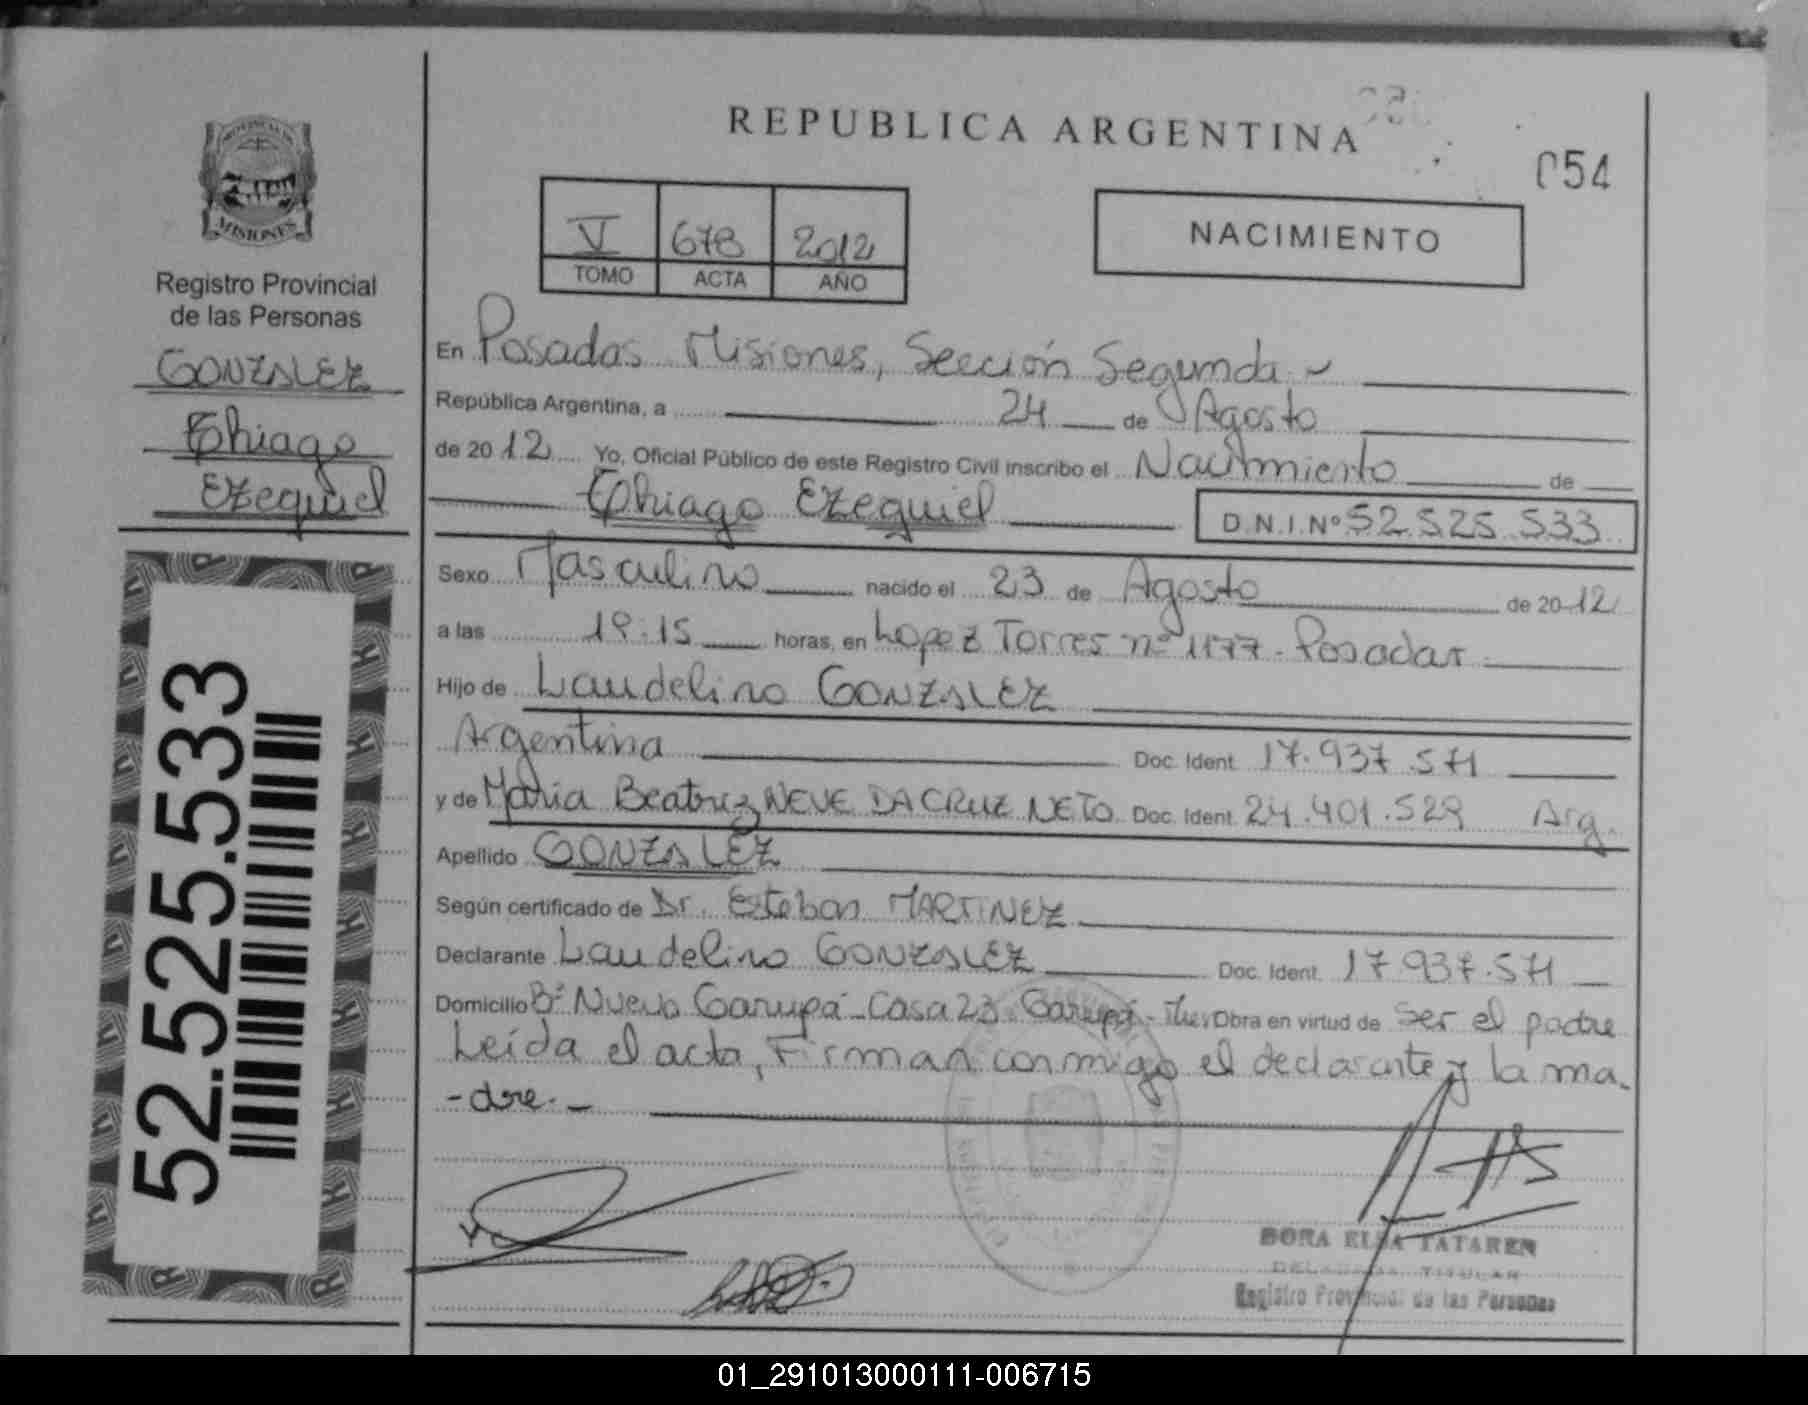 PROVINCIA DE
MISIONES
Registro Provincial
de las Personas
GONZALEZ
Thiago
Ezequiel
52.525.533
REPUBLICA ARGENTINA
054
V 678 2012
TOMO ACTA AÑO
NACIMIENTO
En Posadas Misiones, Sección Segunda.~
República Argentina, a 24 de Agosto
de 2012 Yo, Oficial Público de este Registro Civil inscribo el Nacimiento de
Thiago Ezequiel D.N.I.Nº 52.525.533
Sexo Masculino nacido el 23 de Agosto de 2012
a las 19:15 horas, en Lopez Torres nº 1177 - Posadas
Hijo de Laudelino GONZALEZ
Argentina Doc. Ident. 17.937.571
y de Maria Beatriz NEVE DA CRUZ NETO Doc. Ident. 24.401.529 Arg.
Apellido GONZALEZ
Según certificado de Dr. Esteban MARTINEZ
Declarante Laudelino GONZALEZ Doc. Ident. 17.937.571
Domicilio Bº Nuevo Garupá - Casa 23 - Garupá - Mnes Obra en virtud de ser el padre
Leída el acta, Firman conmigo el declarante y la ma-
-dre.-
DORA ELSA TATAREN
DELEGADA TITULAR
Registro Provincial de las Personas
01_291013000111-006715